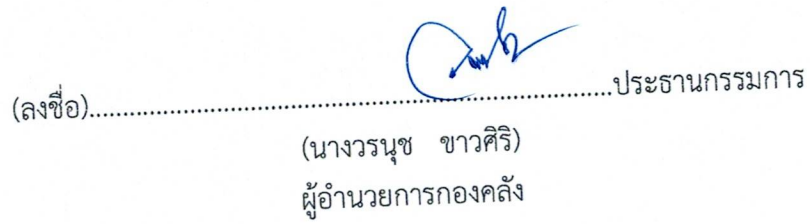 (ลงชื่อ)....................................................................................ประธานกรรมการ
(นางวรนุช ขาวศิริ)
ผู้อำนวยการกองคลัง